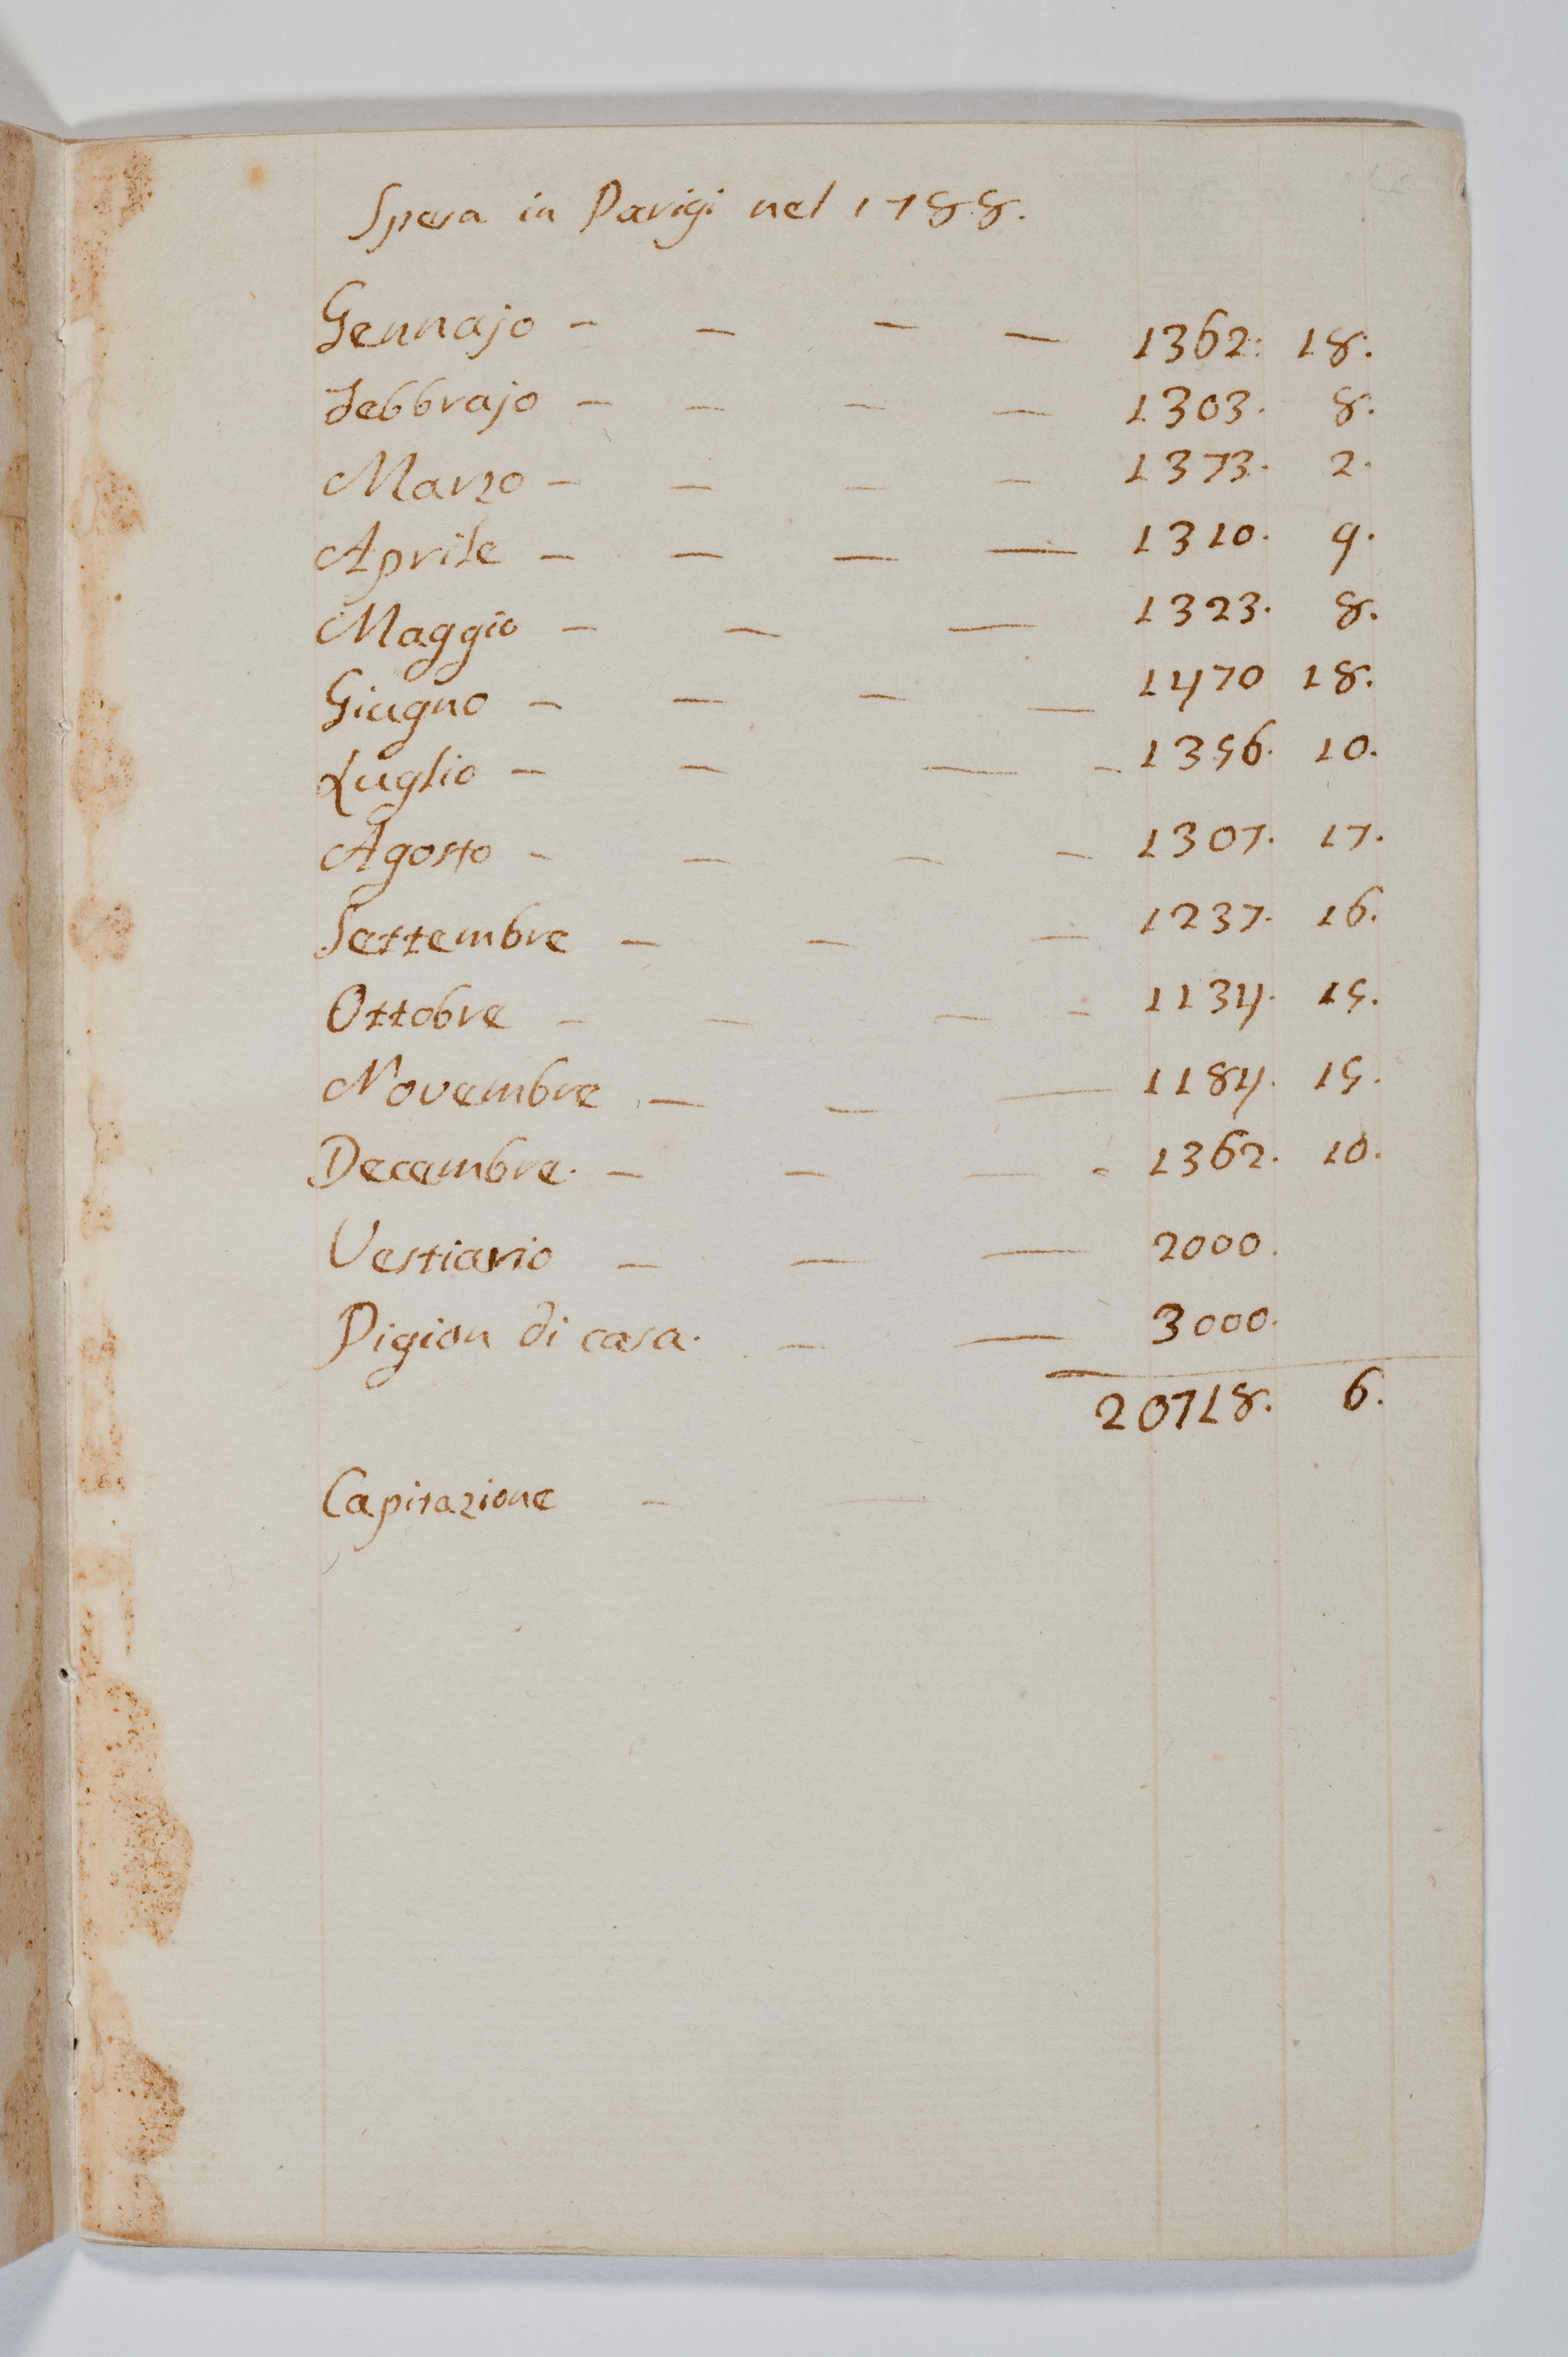 Spesa in Parigi nel 1788.
Gennajo - - - - 1362: 18.
Febbrajo - - - - 1303. 8.
Marzo - - - - 1373. 2.
Aprile - - - - 1310. 9.
Maggio - - - 1323. 8.
Giugno - - - - 1470 18.
Luglio - - - - 1356. 10.
Agosto - - - - 1307. 17.
Settembre - - - 1237. 16.
Ottobre - - - - 1134. 15.
Novembre - - - 1184. 15.
Decembre. - - - - 1362. 10.
Vestiario - - - 2000.
Pigion di casa. - - 3000.
20718. 6.
Capitazione - -